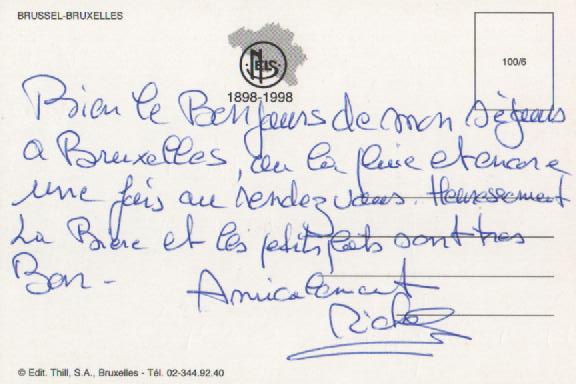 BRUSSEL-BRUXELLES
100/6
NELS
1898-1998
Bien le Bonjours de mon séjours
a Bruxelles, ou la pluie et encore
une fois au rendez vous. Heureusement
La Biere et les petits plats sont tres
Bon -
Amicalement
© Edit. Thill, S.A., Bruxelles - Tél. 02-344.92.40